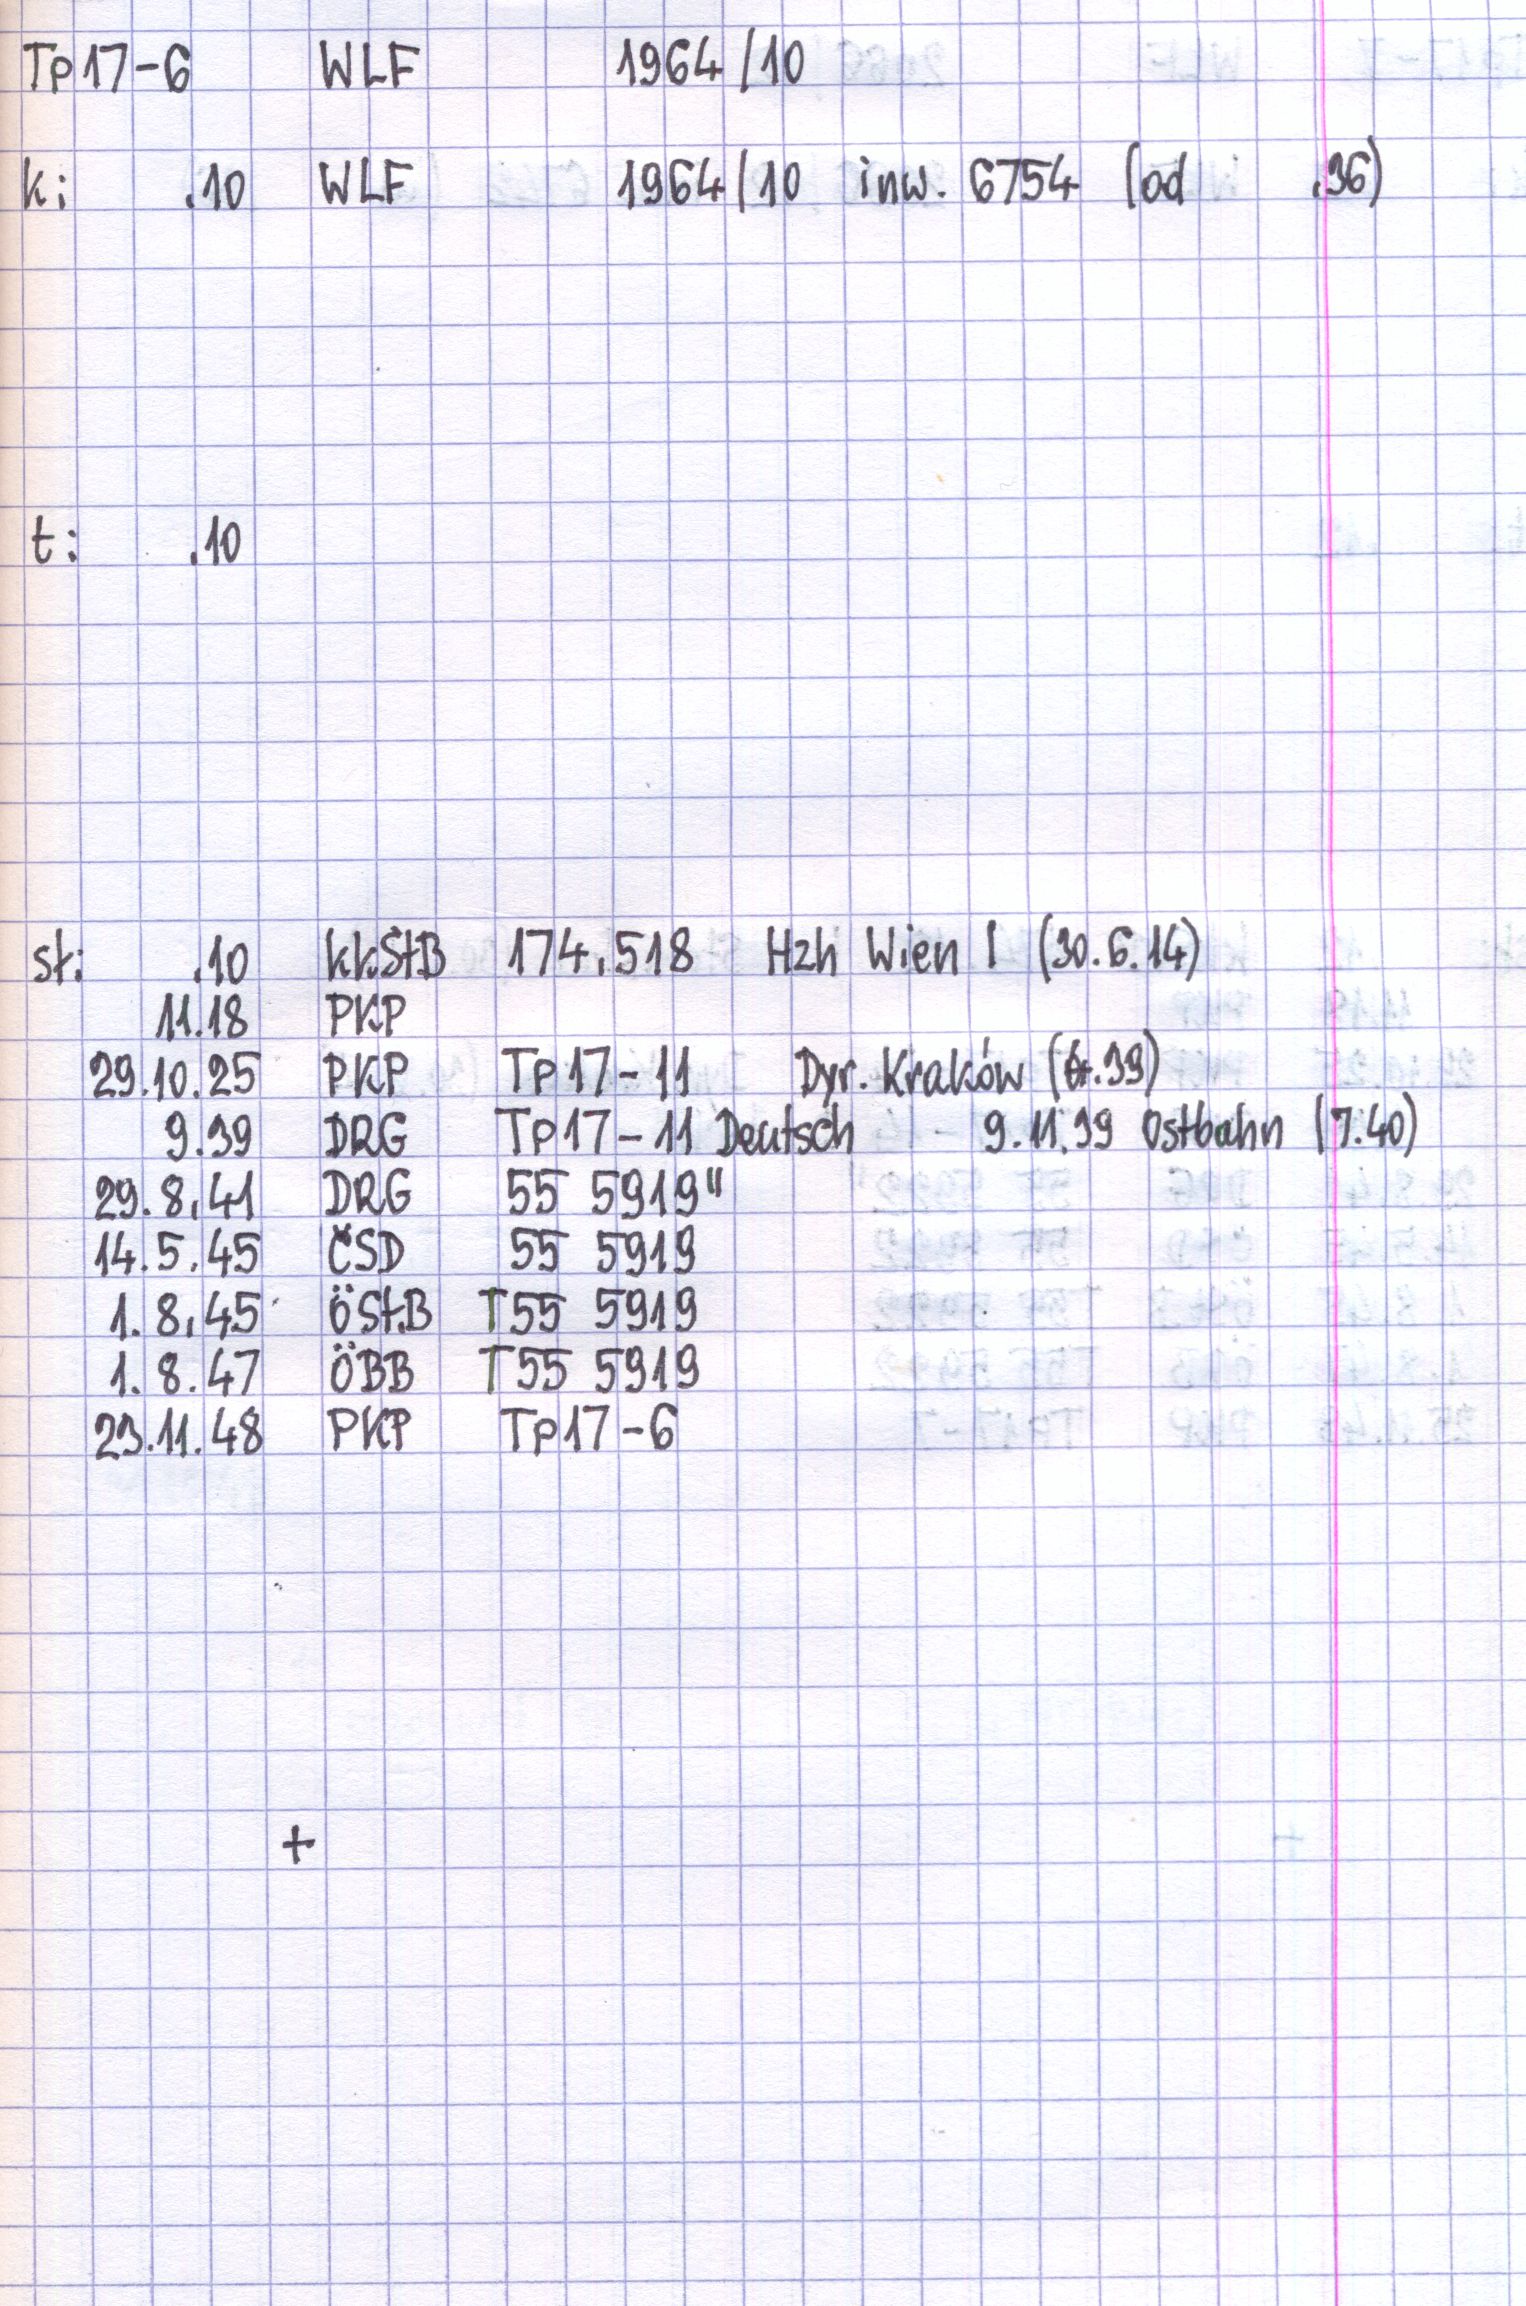 Tp17-6 WLF 1964/10
k: .10 WLF 1964/10 inw. 6754 (od .36)
t: .10
st: .10 kkStB 174.518 Hzh Wien I (30.6.14)
11.18 PKP
29.10.25 PKP Tp17-11 Dyr. Kraków
9.39 DRG Tp17-11 Deutsch 9.11.39 Ostbahn (7.40)
29.8.41 DRG 55 5919"
14.5.45 ČSD 55 5919
1.8.45 ÖStB T55 5919
1.8.47 ÖBB T55 5919
23.11.48 PKP Tp17-6
+